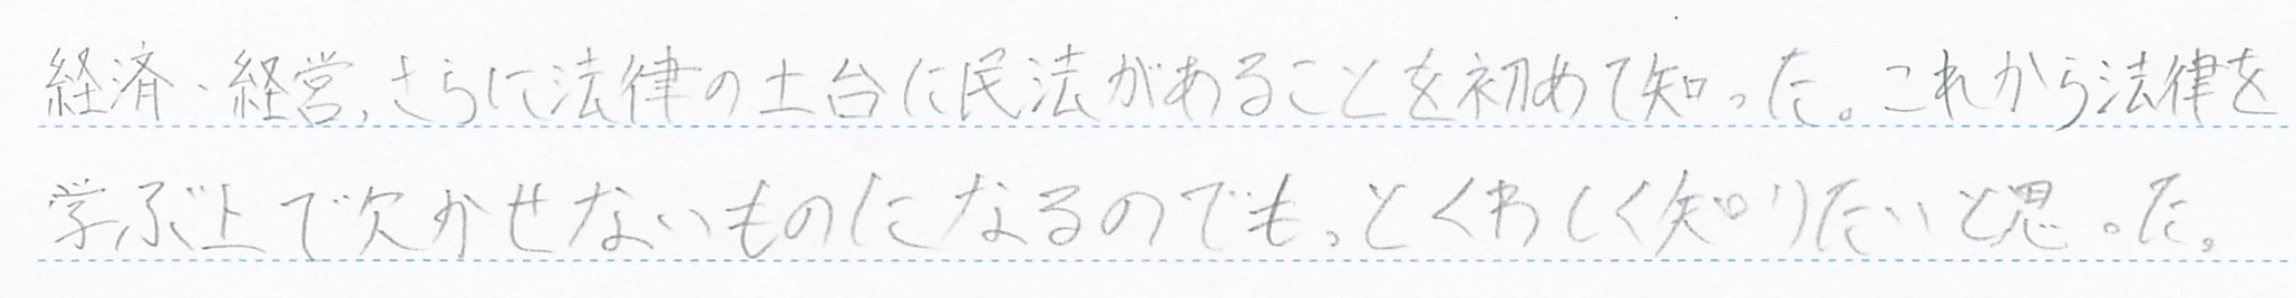 経済・経営,さらに法律の土台に民法があることを初めて知った。これから法律を
学ぶ上で欠かせないものになるのでもっとくわしく知りたいと思った。